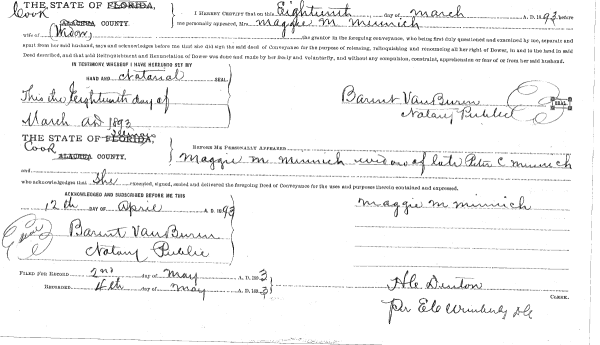 THE STATE OF FLORIDA,
Cook
ALACHUA COUNTY.
I HEREBY CERTIFY that on this Eighteenth day of March A. D. 1893 before
me personally appeared, Mrs. Maggie M. Minnich
wife of (Widow) the grantor in the foregoing conveyance, who being first duly questioned and examined by me, separate and
apart from her said husband, says and acknowledges before me that she did sign the said deed of Conveyance for the purpose of releasing, relinquishing and renouncing all her right of Dower, in and to the land in said
Deed described, and that said Relinquishment and Renunciation of Dower was done and made by her freely and voluntarily, and without any compulsion, constraint, apprehension or fear of or from her said husband.
IN TESTIMONY WHEREOF I HAVE HEREUNTO SET MY
HAND AND Notarial SEAL
This the Eighteenth day of
March AD 1893
Barent Van Buren
Notary Public
SEAL
THE STATE OF FLORIDA, Illinois
Cook
ALACHUA COUNTY.
BEFORE ME PERSONALLY APPEARED
Maggie M Minnich widow of late Peter C Minnich
and
who acknowledges that She executed, signed, sealed and delivered the foregoing Deed of Conveyance for the uses and purposes therein contained and expressed.
ACKNOWLEDGED AND SUBSCRIBED BEFORE ME THIS
12th DAY OF April A. D. 1893
Maggie M Minnich
Seal
Barent Van Buren
Notary Public
FILED FOR RECORD 2nd day of May A. D. 1893
RECORDED 4th day of May A. D. 1893
H C Denton
CLERK.
Per E C Wimberly DC